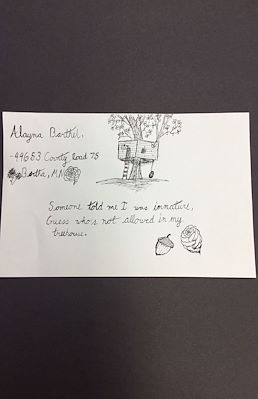 Alayna Barthel,
-49653 County Road 75
Bertha, MN
Someone told me I was immature,
Guess who's not allowed in my
treehouse.